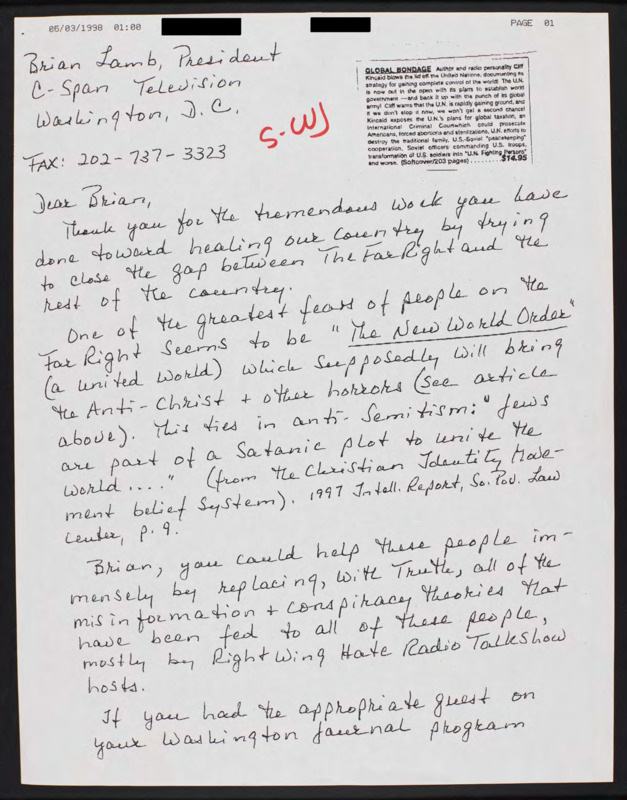 05/03/1998 01:00
PAGE 01
Brian Lamb, President
C-Span Television
Washington, D.C.
FAX: 202-737-3323
S-WJ
GLOBAL BONDAGE Author and radio personality Cliff
Kincaid blows the lid off the United Nations, documenting its
strategy for gaining complete control of the world. The U.N.
is now out in the open with its plans to establish world
government—and back it up with the punch of its global
army! Cliff warns that the U.N. is rapidly gaining ground, and
if we don't stop it now, we won't get a second chance!
Kincaid exposes the U.N.'s plans for global taxation, an
International Criminal Court which could prosecute
Americans, forced abortions and sterilizations, U.N. efforts to
destroy the traditional family, U.S.-Soviet "peacekeeping"
cooperation, Soviet officers commanding U.S. troops,
transformation of U.S. soldiers into "U.N. Fighting Persons"
and worse. (Softcover/203 pages)........$14.95
Dear Brian,
Thank you for the tremendous work you have
done toward healing our country by trying
to close the gap between The Far Right and the
rest of the country.
One of the greatest fears of people on the
Far Right seems to be "The New World Order"
(a united world) which supposedly will bring
the Anti-Christ + other horrors (see article
above). This ties in anti-Semitism: "Jews
are part of a Satanic plot to unite the
world...." (from the Christian Identity Move-
ment belief system). 1997 Intell. Report, So. Pov. Law
Center, p. 9.
Brian, you could help these people im-
mensely by replacing, with Truth, all of the
misinformation + conspiracy theories that
have been fed to all of these people,
mostly by Right Wing Hate Radio Talkshow
hosts.
If you had the appropriate guest on
your Washington Journal program